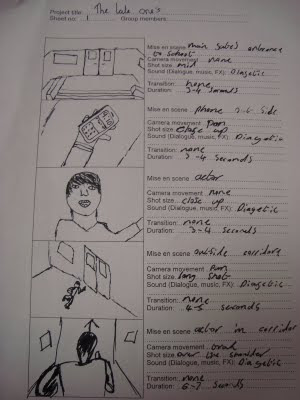 Project title: The late one's
Sheet no: 1 Group members:
Mise en scene main gates entrance
to school
Camera movement none
Shot size mid
Sound (Dialogue, music, FX): Diagetic
Transition: none
Duration: 3-4 seconds
Mise en scene phone
Camera movement pan
Shot size close up
Sound (Dialogue, music, FX): Diagetic
Transition: none
Duration: 3-4 seconds
Mise en scene actor
Camera movement none
Shot size close up
Sound (Dialogue, music, FX): Diagetic
Transition: none
Duration: 3-4 seconds
Mise en scene outside corridors
Camera movement pan
Shot size long shot
Sound (Dialogue, music, FX): Diagetic
Transition: none
Duration: 4-5 seconds
Mise en scene actor in corridor
Camera movement
Shot size over the shoulder
Sound (Dialogue, music, FX): Diagetic
Transition: none
Duration: 6-7 seconds